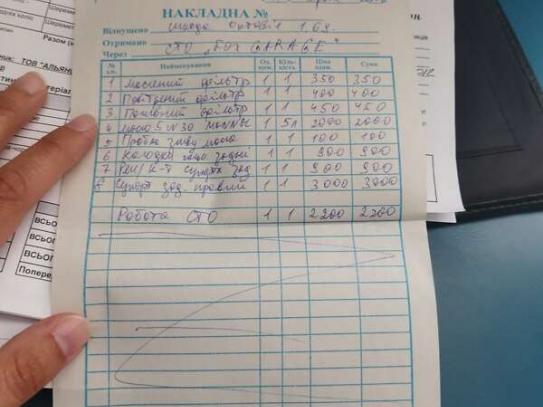 НАКЛАДНА №
Відпущено шкода октавія 1.6д.
Отримано СТО "БОТ GARAGE"
Через
№ Найменування Од. Кіль- кість Ціна Сума
1 Масляний фільтр 1 1 350 350
2 Повітряний фільтр 1 1 400 400
3 Паливний фільтр 1 1 450 450
4 масло 5W30 1 5л 2000 2000
5 Пробка зливу масла 1 1 100 100
6 Колодки задні 1 1 900 900
7 Рем/к-т супорта зад 1 1 900 900
8 Супорт зад. правий 1 3000 3000
Робота СТО 1 1 2200 2200
ТОВ "АЛЬЯН
ВСЬО
ВСЬО
ВСЬО
Попере